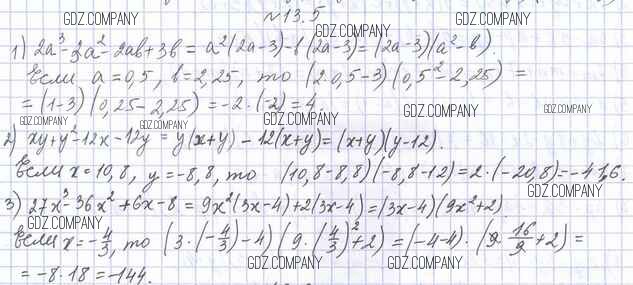 №13.5
GDZ.COMPANY GDZ.COMPANY GDZ.COMPANY
1) 2a³-3a²-2ab+3b = a²(2a-3)-b(2a-3)=(2a-3)(a²-b).
Если a=0,5, b=2,25, то (2·0,5-3)(0,5²-2,25) =
= (1-3)(0,25-2,25) = -2·(-2) = 4.
GDZ.COMPANY GDZ.COMPANY GDZ.COMPANY GDZ.COMPANY
2) xy+y²-12x-12y = y(x+y)-12(x+y)=(x+y)(y-12).
Если x=10,8, y=-8,8, то (10,8-8,8)(-8,8-12)=2·(-20,8)=-41,6.
GDZ.COMPANY
3) 27x³-36x²+6x-8 = 9x²(3x-4)+2(3x-4)=(3x-4)(9x²+2).
GDZ.COMPANY
Если x=-4/3, то (3·(-4/3)-4)(9·(4/3)²+2)=(-4-4)·(9·16/9+2)=
GDZ.COMPANY GDZ.COMPANY
= -8·18 = -144.